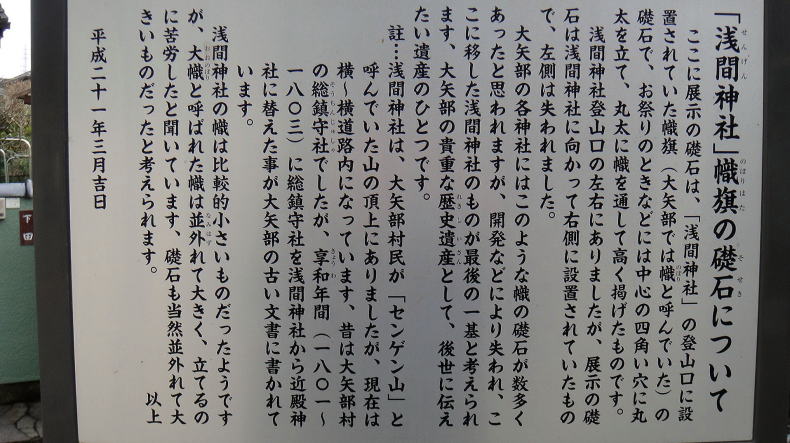 「浅間神社」幟旗の礎石について
ここに展示の礎石は、「浅間神社」の登山口に設
置されていた幟旗（大矢部では幟と呼んでいた）の
礎石で、お祭りのときなどには中心の四角い穴に丸
太を立て、丸太に幟を通して高く掲げたものです。
浅間神社登山口の左右にありましたが、展示の礎
石は浅間神社に向かって右側に設置されていたもの
で、左側は失われました。
大矢部の各神社にはこのような幟の礎石が数多く
あったと思われますが、開発などにより失われ、こ
こに移した浅間神社のものが最後の一基と考えられ
ます、大矢部の貴重な歴史遺産として、後世に伝え
たい遺産のひとつです。
註…浅間神社は、大矢部村民が「センゲン山」と
呼んでいた山の頂上にありましたが、現在は
横〜横道路内になっています、昔は大矢部村
の総鎮守社でしたが、享和年間（一八〇一〜
一八〇三）に総鎮守社を浅間神社から近殿神
社に替えた事が大矢部の古い文書に書かれて
います。
浅間神社の幟は比較的小さいものだったようです
が、大幟と呼ばれた幟は並外れて大きく、立てるの
に苦労したと聞いています、礎石も当然並外れて大
きいものだったと考えられます。
以上
平成二十一年三月吉日
下田